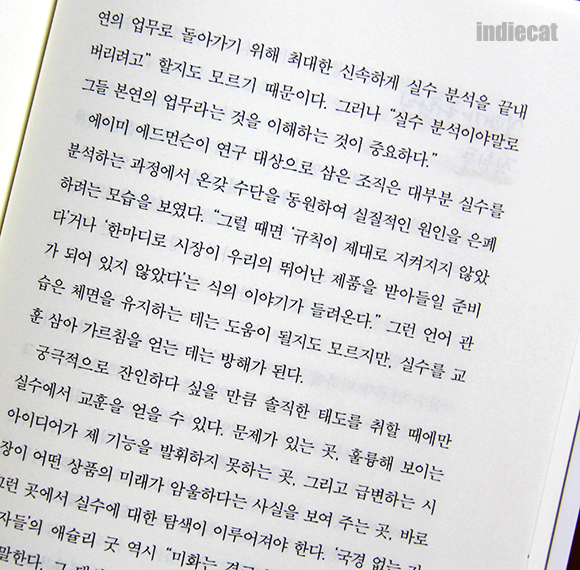 indiecat
연의 업무로 돌아가기 위해 최대한 신속하게 실수 분석을 끝내
버리려고” 할지도 모르기 때문이다. 그러나 “실수 분석이야말로
그들 본연의 업무라는 것을 이해하는 것이 중요하다.”
에이미 에드먼슨이 연구 대상으로 삼은 조직은 대부분 실수를
분석하는 과정에서 온갖 수단을 동원하여 실질적인 원인을 은폐
하려는 모습을 보였다. “그럴 때면 ‘규칙이 제대로 지켜지지 않았
다’거나 ‘한마디로 시장이 우리의 뛰어난 제품을 받아들일 준비
가 되어 있지 않았다’는 식의 이야기가 들려온다.” 그런 언어 관
습은 체면을 유지하는 데는 도움이 될지도 모르지만, 실수를 교
훈 삼아 가르침을 얻는 데는 방해가 된다.
궁극적으로 잔인하다 싶을 만큼 솔직한 태도를 취할 때에만
실수에서 교훈을 얻을 수 있다. 문제가 있는 곳, 훌륭해 보이는
아이디어가 제 기능을 발휘하지 못하는 곳, 그리고 급변하는 시
장이 어떤 상품의 미래가 암울하다는 사실을 보여 주는 곳, 바로
그런 곳에서 실수에 대한 탐색이 이루어져야 한다. ‘국경 없는
자들’의 애슐리 굿 역시 “미화는
말한다. 그